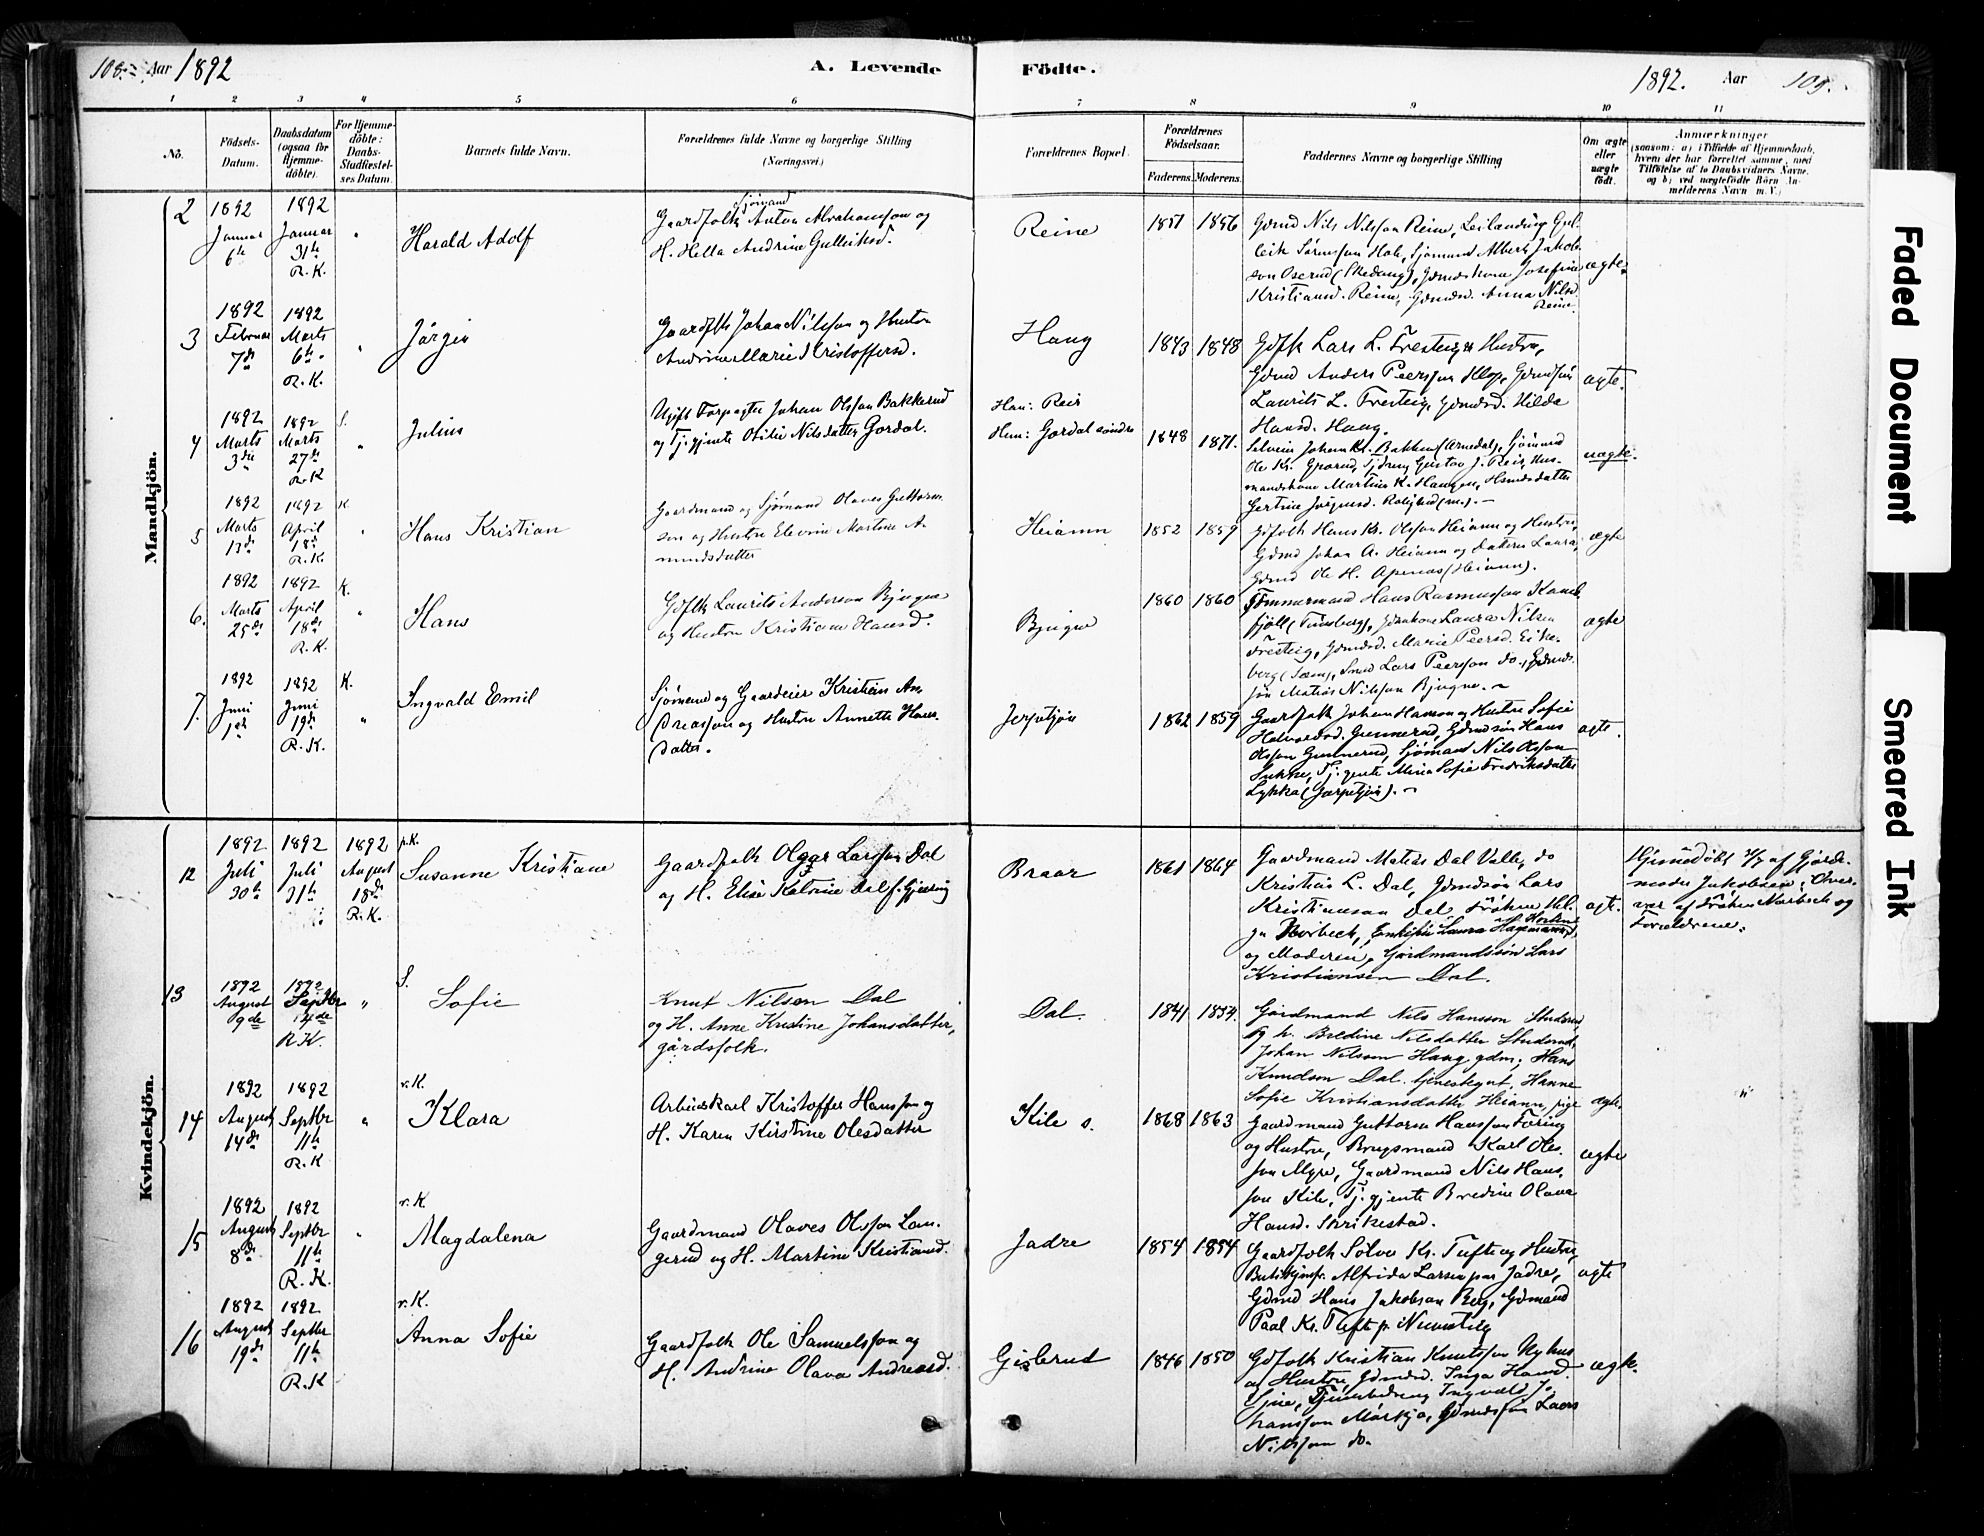 108. Aar 1892 A. Levende Födte. 1892. Aar 109.
1 2 3 4 5 6 7 8 9 10 11
No.
Födsels-
Datum.
Daabsdatum
(ogsaa for
Hjemme-
döbte).
For Hjemme-
döbte:
Daabs-
Stadfæstel-
ses Datum.
Barnets fulde Navn.
Forældrenes fulde Navne og borgerlige Stilling
(Næringsvei.)
Forældrenes Bopæl.
Forældrenes
Födselsaar.
Faderens. Moderens.
Faddernes Navne og borgerlige Stilling
Om ægte
eller
uægte
født.
Anmærkninger
(saasom: a) i Tilfælde af Hjemmedaab,
hvem der har forrettet samme, med
Tilföielse af to Daabsvidners Navne,
og b) ved uægtefödte Börn An-
melderens Navn m. V.)
Mandkjön.
2
1892
Januar
6te
1892
Januar
31te
R. K.
"
Harald Adolf
Sjømand
Gaardfolk Anton Abrahamsson og
H. Hella Andrine Gulliksd.
Reine
1851 1856
Gdmd Nils Nilsson Reine, Leilænding Gul-
leik Sørensson Hole, Sjømand Albert Jakob-
son Oserud (Skedang), Gdmdskone Josefine
Kristiansd. Reine, Gdmdsd. Anna Nilsd.
Reine.
ægte.
3
1892
Februar
7de
1892
Marts
6te
R. K.
"
Jørgen
Gaardfolk Johan Nilsson og Hustru
Andrine Marie Kristoffersd.
Haug
1843 1848
Gdfk Lars L. Fresteig & Hustru,
Gdmd Anders Peersson Klop, Gdmdsøn
Laurits L. Fresteig, Gdmdsd. Hilda
Hansd. Haug.
ægte.
4
1892
Marts
3die
1892
Marts
27de
R. K
S.
"
Julius
Ugift Forpagter Johan Olsson Bakkerud
og Tj. gjente Otilie Nilsdatter Gordal.
Han: Reis
Hun: Gordal søndre
1848 1871.
Selveier Johan Kr. Bakken (Arnedal), Sjømand
Ole Kr. Tjdreng Gustav J. Reis, Hus-
mandskone Martine K. Haugen, Hsmdsdatter
Gertine Jørgensd. Rolighed (m.). —
uægte.
5
1892
Marts
13de
1892
April
18de
R. K.
K
"
Hans Kristian
Gaardmand og Sjømand Olaves Guttorm-
son og Hustru Elevine Martine A-
mundsdatter
Heiamn
1852 1859
Gdfolk Hans Kr. Olsson Heiamn og Hustru,
Gdmd Johan A. Heiamn og Datteren Laura,
Gdmd Ole H. Apenæs (Heiamn).
ægte
6.
1892
Marts
25de
1892
April
18de
R. K.
K.
"
Hans
Gdfk Laurits Anderson Bjugne
og Hustru Kristiane Hansd.
Bjugne
1860 1860
Tømmermand Hans Rasmusson Kamel-
fjøll (Tønsberg), Gdmkone Laura Nilsen
Fresteig, Gdmdsd. Marie Peersd. Eike-
berg (Sæm), Smed Lars Peersson do., Gdmds-
søn Matias Nilsson Bjugne. —
ægte
7.
1892
Juni
1ste
1892
Juni
19de
R. K.
K.
"
Ingvald Emil
Sjømand og Gaardeier Kristian An-
dreasson og Hustru Annette Hans-
datter.
Jerpetjøn
1862 1859
Gaardfolk Johan Hansson og Hustru Sofie
Halvorsd. Gunnerud, Gdmdsøn Hans
Olsson Gunnerud, Sjømand Nils Olsson
Sukke, Tj. gjente Mina Sofie Fredriksdatter
Lykka (Jærpetjøn). —
ægte.
Kvindekjön.
12
1892
Juli
30te
1892
Juli
31te
1892
August
18de
R. K.
p. K.
Susanne Kristiane
Gaardfolk Olgar Larsson Dal
og H. Elise Katrine Dal f. Gjering
Braar
1861 1864
Gaardmand Matias Dal Valle, do
Kristian L. Dal, Gdmdsøn Lars
Kristiansen Dal, Frøken Hel-
ga Norbech, Laura Horten
og Moderen, Gårdmandssøn Lars
Kristiansen Dal.
ægte.
Hjemmedøbt 31/7 af Gjorde-
moder Jakobsen; Over-
var af Frøken Norbech og
Forældrene.
13
1892
August
9de
1892
Septbr
4de
R. K.
"
S.
Sofie
Knut Nilsen Dal
og H. Anne Kristine Johansdatter,
gårdsfolk.
Dal.
1841 1854.
Gårdmand Nils Hansson Studerud
og h. Beldine Nilsdatter Studerud,
Johan Nilsson Haug gdm; Hans
Knudson Dal. tjenestegut, Hanne
Sofie Kristiansdatter Heiamn, pige
ægte
14
1892
August
14de
1892
Septbr
11te
R. K
"
v. K.
Klara
Arbeidskarl Kristoffer Hansson og
H. Karen Kirstine Olesdatter
Kile s.
1868 1863
Gaardmand Guttorm Hansson Foring
og Hustru, Brugsmand Karl Ols-
son Myre, Gaardmand Nils Hans-
son Kile, Tj. gjente Bredine Olava
Hansd. Skrikestad.
ægte
15
1892
August
8de
1892
Septbr
11te
R. K.
"
v. K
Magdalena
Gaardmand Olaves Olsson Lan-
gerud og H. Martine Kristiansd.
Jadre
1854 1854
Gaardfolk Sølve Kr. Tufte og Hustru,
Butikjomfr. Alfrida Larsen paa Jadre,
Gdmd Hans Jakobsen Berg, Gdmand
Paal Kr. Tufte p. Numsteig
ægte
16
1892
August
19de
1892
Septbr
11te
R. K
v. K.
Anna Sofie
Gaardfolk Ole Samuelsson og
H. Andrine Olava Andreasd.
Gislerud
1846 1850
Gdfolk Kristian Knutsson Nyhus
og Hustru, Gdmdsd. Inga Hansd.
Sjue, Tjenestedreng Ingvald Jo-
hansson Mørkja, Gdmdssøn Lars
Nilsson do.
ægte.
Faded Document
Smeared Ink